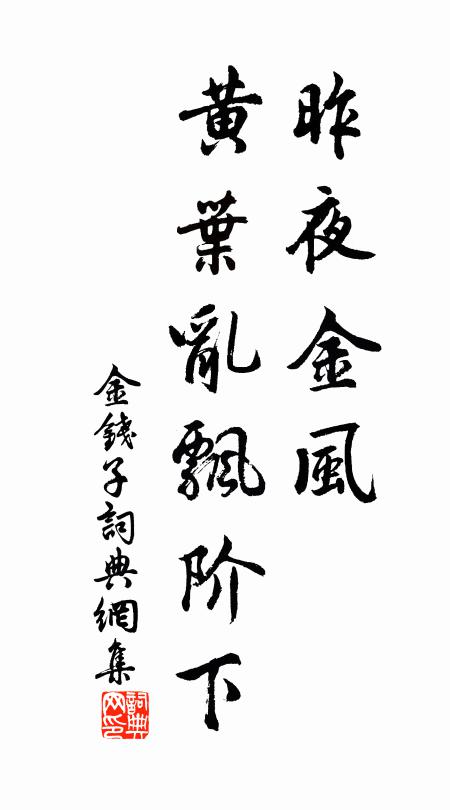 昨夜金風
黃葉亂飄阶下
金錢子詞典網集
詞典
网印